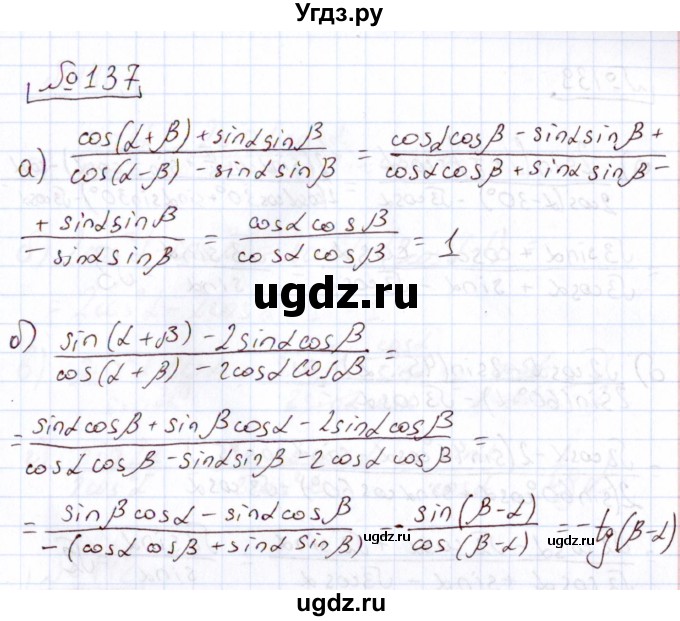 Угдз.ру
№137
а) cos(α+β)+sinα sinβ / cos(α-β) - sinα sinβ = cosα cosβ - sinα sinβ + / cosα cosβ + sinα sinβ -
+ sinα sinβ / - sinα sinβ = cosα cosβ / cosα cosβ = 1
ugdz.ru
б) sin(α+β) - 2sinα cosβ / cos(α+β) - 2cosα cosβ =
= sinα cosβ + sinβ cosα - 2sinα cosβ / cosα cosβ - sinα sinβ - 2cosα cosβ =
= sinβ cosα - sinα cosβ / -(cosα cosβ + sinα sinβ) = - sin(β-α) / cos(β-α) = -tg(β-α)
ugdz.ru
ugdz.ru
ugdz.ru